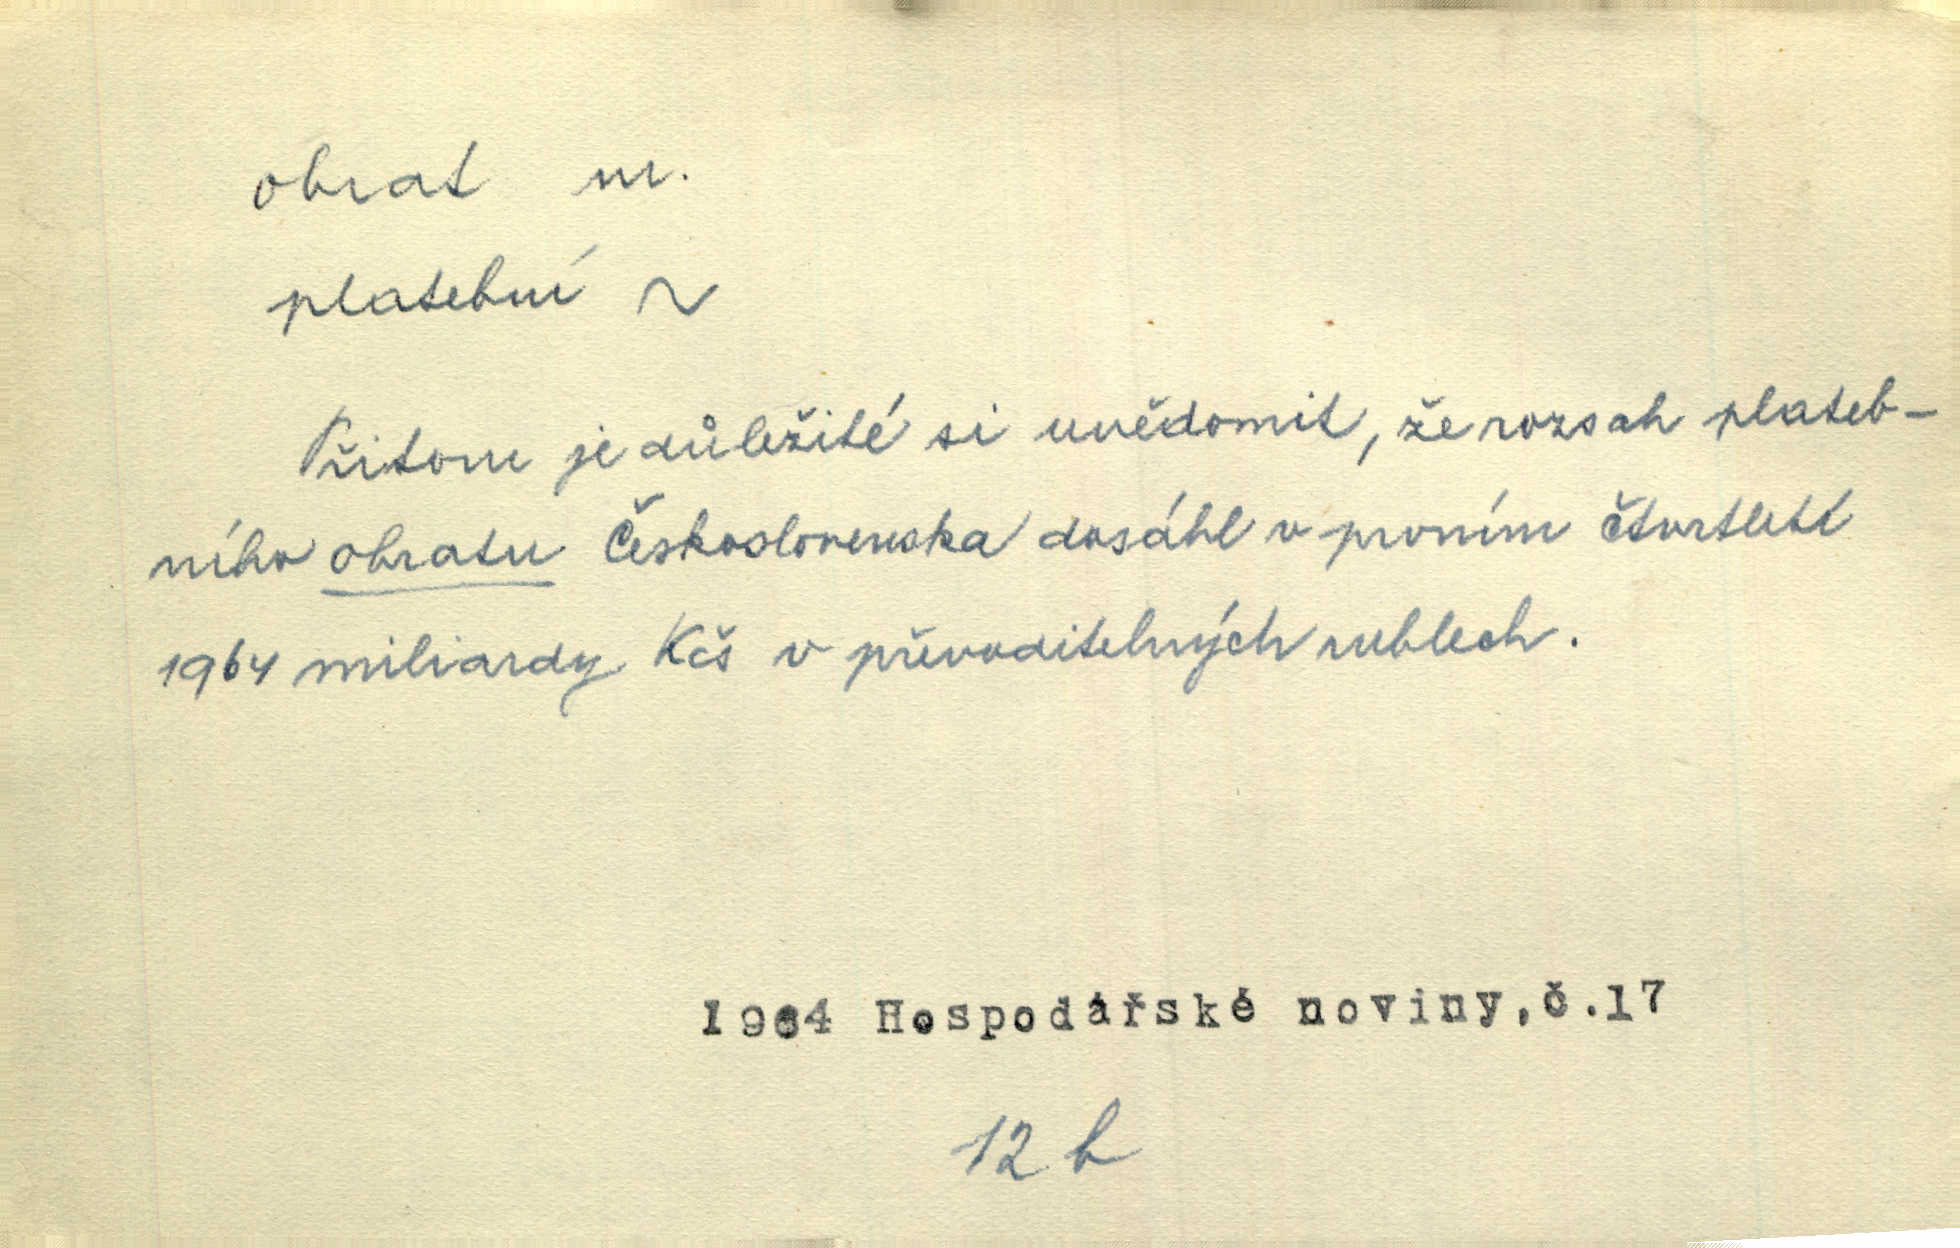 obrat m.
platební ~
Přitom je důležité si uvědomit, že rozsah plateb-
ního obratu Československa dosáhl v prvním čtvrtletí
1964 miliardy Kčs v převoditelných rublech.
1964 Hospodářské noviny,č.17
12 b